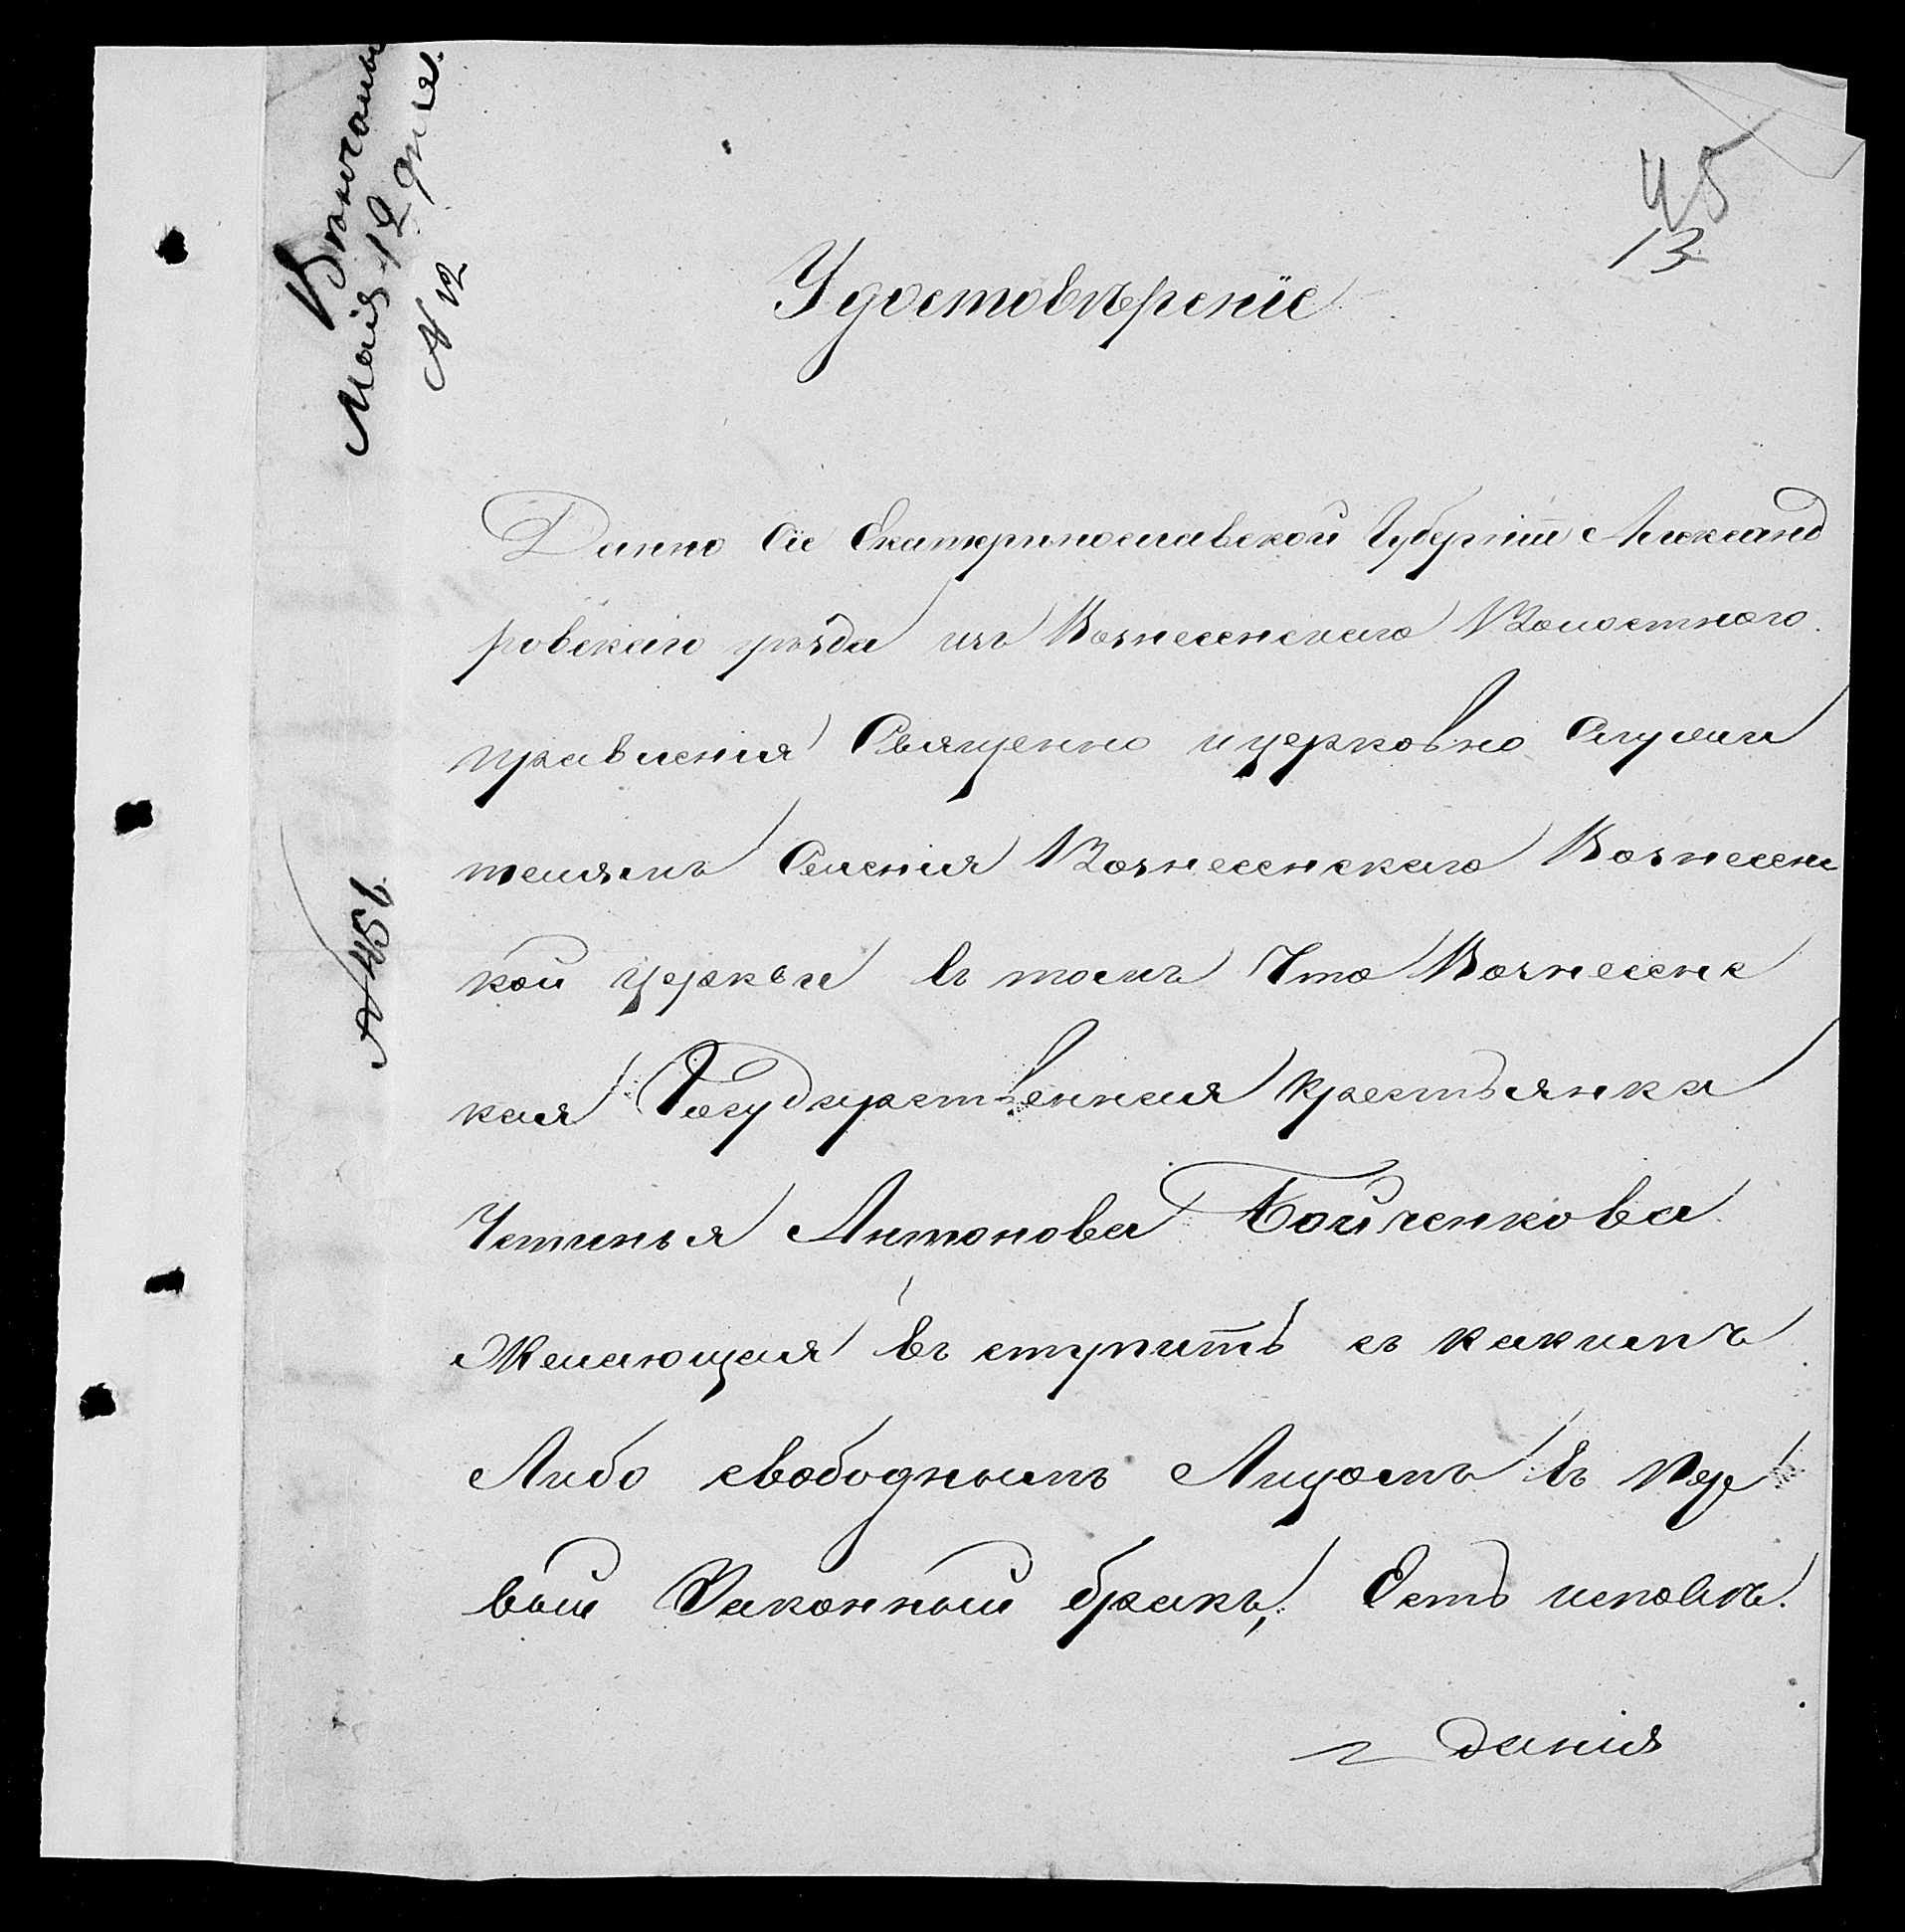 45
13
Вѣнчаны
Мая 12 дня
№ 12
Удостовѣреніе
Данно Сіе Екатеринославской Губерніи Александ
ровскаго уѣзда изъ Вознесенскаго Волостного
правленія Священно и церковно Служи
телямъ Селенія Вознесенскаго Вознесенс
кой церкви въ томъ Что Вознесенс
кая Государственная крестьянка
Устинья Антонова Бойченкова
Желающая въ ступить съ какимъ
Либо свободнымъ Лицомъ въ пер
вый Законный бракъ, Есть исповѣ.
данія
№ 456